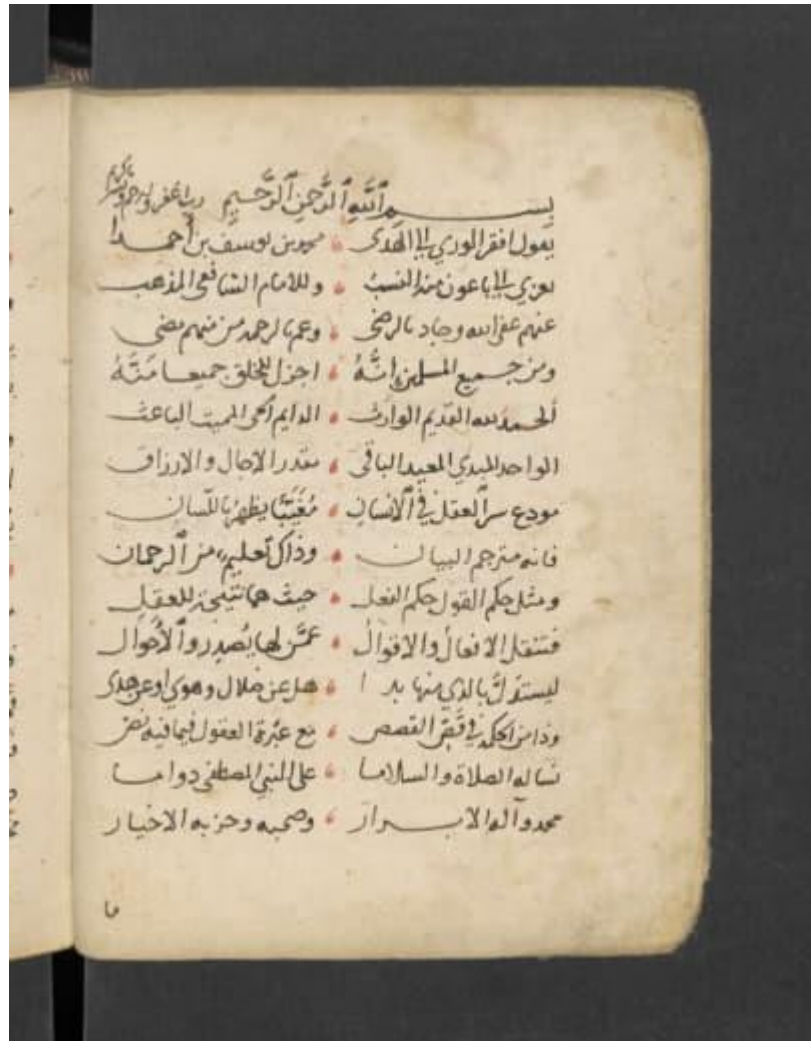 بسم ٱللَّه ٱلرَّحمن ٱلرَّحيم رب اغفر وارحم
يقول افقر الورى الى الهدى محمد بن يوسف بن أحمدا
يعزى الى باعون منه النسبُ وللامام الشافعي المذهب
عنهم عفى الله وجاد بالرضى وعم بالرحمة من منهم مضى
ومن جميع المسلمين انَّهُ اجزل للخلق جميعا مَنَّهُ
ألحمدُ لله القديم الوارث الدايم الحى المميت الباعث
الواحد المبدي المعيد الباقى مقدر الاجال والارزاق
مودع سر ٱلعقل في ٱلانسان مُغَيَّبًا يظهر باللّسان
فانه مترجم البيان وذاك تعليم من ٱلرحمان
ومثل حكم القول حكم الفعل حيث هما نتيجة للعقل
فتنقل الافعالُ والاقوالُ عمَّن لها يُصدر وٱلأحوال
ليستدلَّ بالذي منها بدا هل عن ضلال وهوى اوعن هدى
وذا من الحكمة في قَصّ القصص مع عبْرة العقول فيما فيه نص
نساله الصلاة والسلاما على النبي المصطفى دواما
محمد وآله الابرار وصحبه وحزبه الاخيار
ما